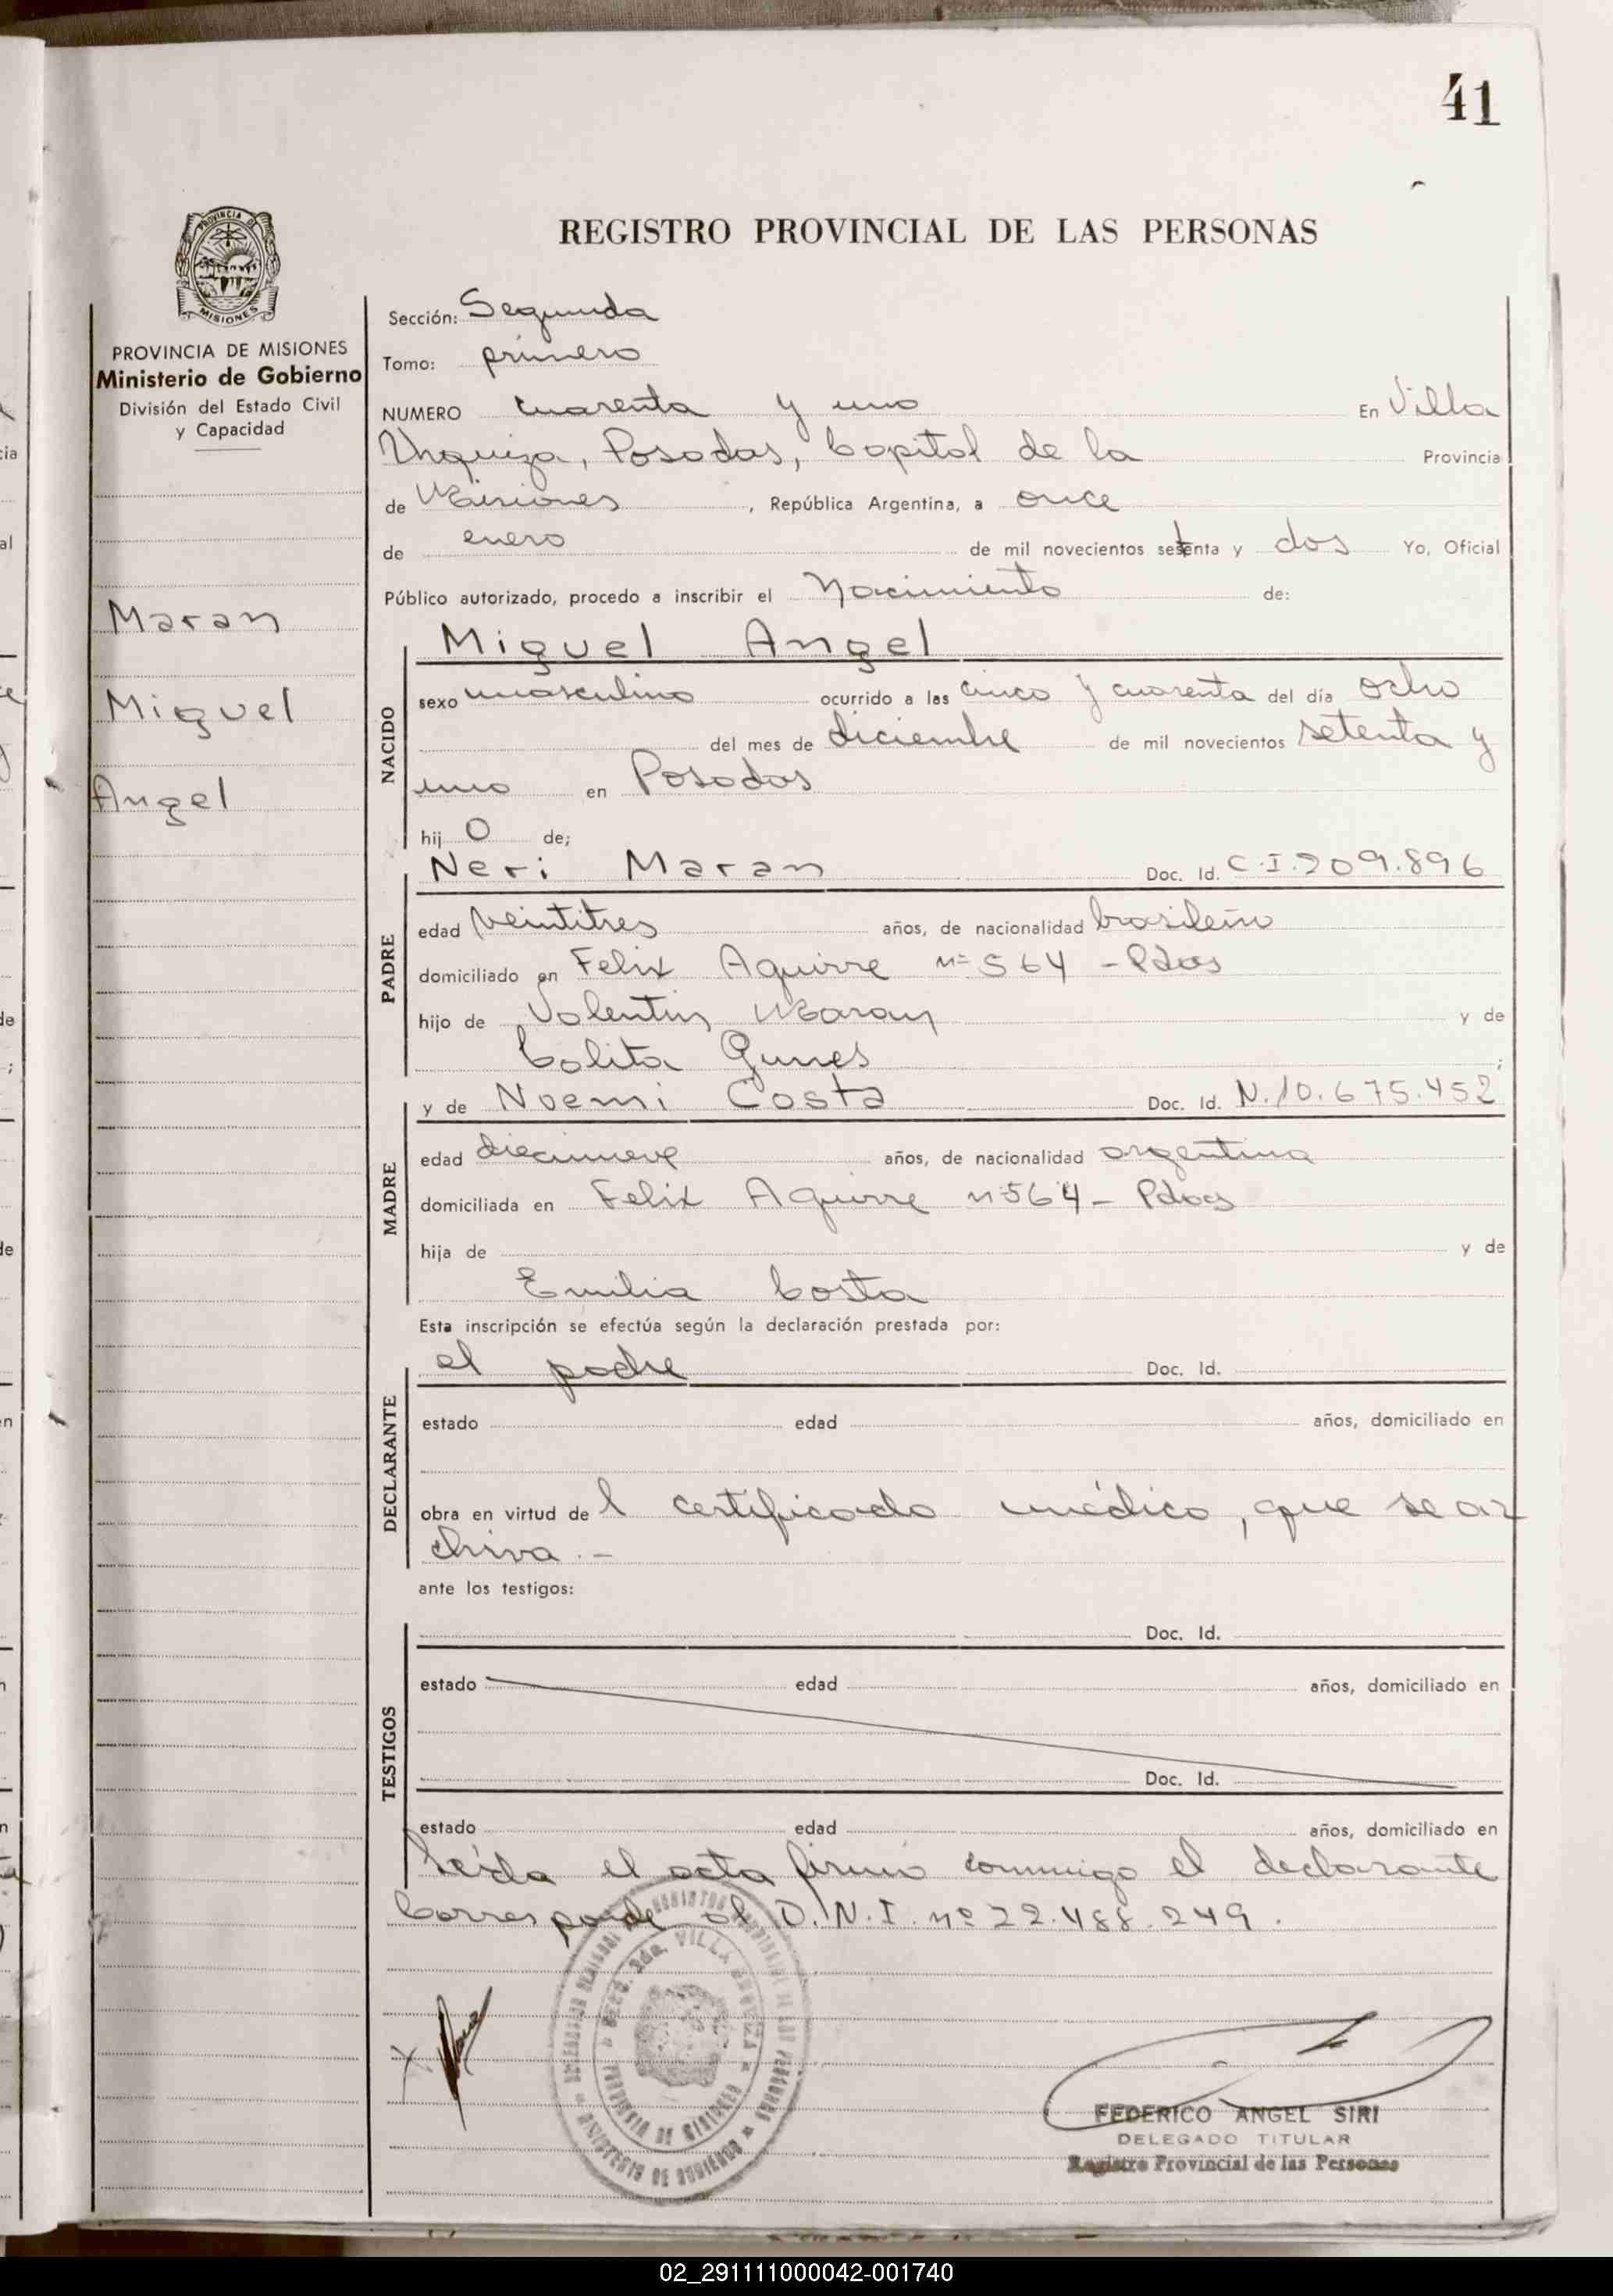 41
REGISTRO PROVINCIAL DE LAS PERSONAS
PROVINCIA DE
MISIONES
PROVINCIA DE MISIONES
Ministerio de Gobierno
División del Estado Civil
y Capacidad
Maran
Miguel
Angel
Sección: Segunda
Tomo: primero
NUMERO cuarenta y uno En Villa
Urquiza, Posadas, Capital de la Provincia
de Misiones, República Argentina, a once
de enero de mil novecientos setenta y dos Yo, Oficial
Público autorizado, procedo a inscribir el Nacimiento de:
Miguel Angel
NACIDO
sexo masculino ocurrido a las cinco y cuarenta del día ocho
del mes de diciembre de mil novecientos setenta y
uno en Posadas
hij o de;
Neri Maran Doc. Id. C.I.209.896
PADRE
edad veintitres años, de nacionalidad brasileño
domiciliado en Felix Aguirre nº 564 - Pdas
hijo de Valentin Maran y de
Colita ;
y de Noemi Costa Doc. Id. N.10.675.452
MADRE
edad diecinueve años, de nacionalidad argentina
domiciliada en Felix Aguirre n 564 - Pdas
hija de y de
Emilia Costa
Esta inscripción se efectúa según la declaración prestada por:
el padre Doc. Id.
DECLARANTE
estado edad años, domiciliado en
obra en virtud de l certificado médico, que se ar
chiva. -
ante los testigos:
Doc. Id.
TESTIGOS
estado edad años, domiciliado en
Doc. Id.
estado edad años, domiciliado en
Leída el acta firmó conmigo el declarante
Corresponde al D.N.I. nº 22.488.249.
SECC. 2da. VILLA URQUIZA
PROVINCIA DE MISIONES
MINISTERIO DE GOBIERNO
FEDERICO ANGEL SIRI
DELEGADO TITULAR
Registro Provincial de las Personas
02_291111000042-001740